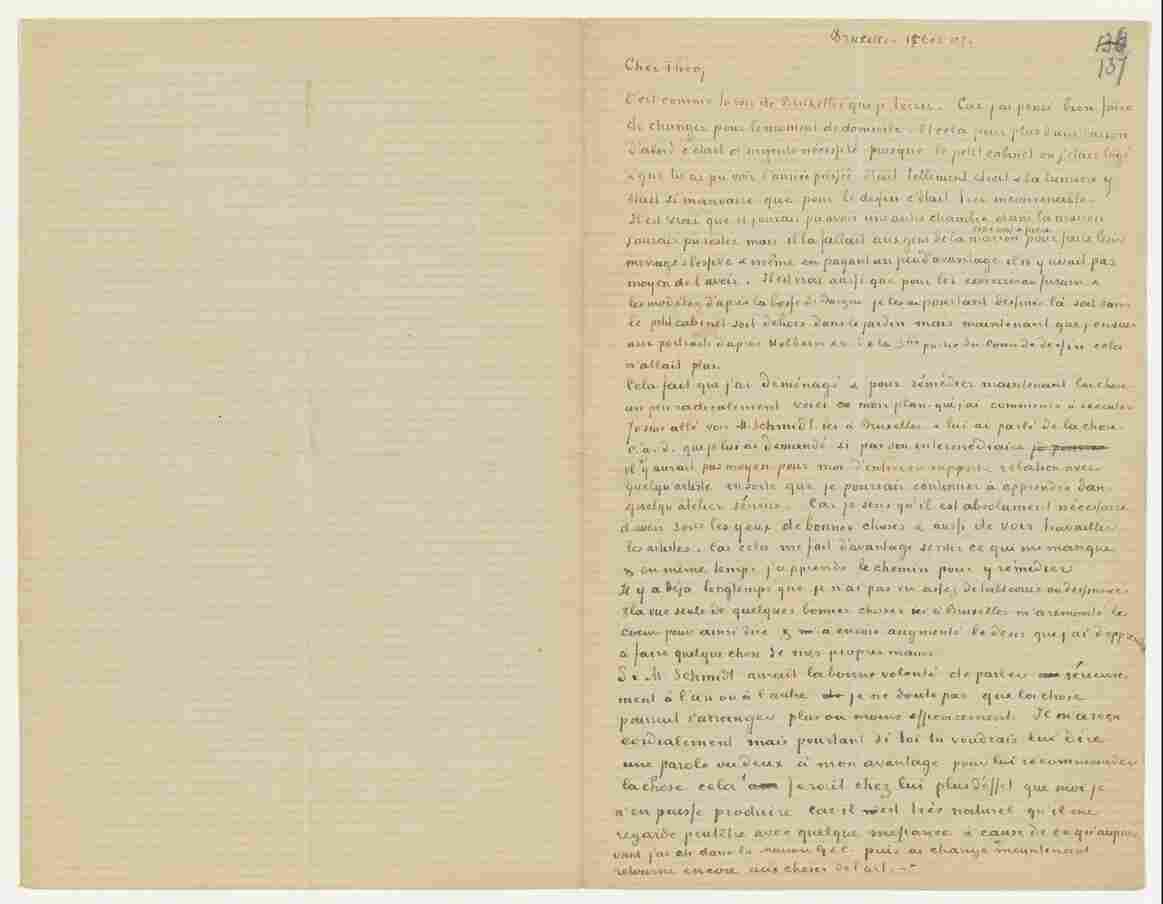 Bruxelles 15 Oct
136
137
Cher Théo,
C'est comme tu vois de Bruxelles que je t'écris. Car j'ai pensé bien faire
de changer pour le moment de domicile. Et cela pour plus d'une raison
D'abord c'était d'urgente nécessité puisque le petit cabinet où j'étais logé
& que tu as pu voir l'année passée était tellement étroit & la lumière y
était si mauvaise que pour le dessin c'était très inconvenable.
Il est vrai que si j'aurais pu avoir une autre chambre dans la maison
j'aurais pu rester mais il la fallait aux gens de la maison pour faire leur
ménage & lessive & même en payant un peu d'avantage il n'y avait pas
moyen de l'avoir. Il est vrai aussi que pour les exercices au fusain &
les modèles d'après la bosse de Bargue je les ai pourtant dessinés là soit dans
le petit cabinet soit dehors dans le jardin mais maintenant que j'en suis
aux portraits d'après Holbein &c de la 3me partie du Cours de dessin cela
n'allait plus.
Cela fait que j'ai déménagé & pour rémédier maintenant la chose
un peu radicalement voici mon plan que j'ai commencé à exécuter
J'ai été allé voir M. Schmidt ici à Bruxelles & lui ai parlé de la chose
c.à.d. que je lui ai demandé si par son intermédiaire je pourrais
il y aurait pas moyen pour moi d'entrer en rapports relation avec
quelqu'artiste en sorte que je pourrais continuer à apprendre dans
quelqu'atelier sérieux. Car je sens qu'il est absolument nécessaire
d'avoir sous les yeux de bonnes choses & aussi de voir travailler
les artistes. Car cela me fait d'avantage sentir ce qui me manque
& en même temps j'apprends le chemin pour y rémédier
Il y a déjà longtemps que je n'ai pas vu assez de tableaux ou dessins &c
& la vue seule de quelques bonnes choses ici à Bruxelles m'a remonté le
coeur pour ainsi dire & m'a encore augmenté le désir que j'ai d'apprendre
à faire quelque chose de mes propres mains.
Si M Schmidt aurait la bonne volonté de parler sérieuse-
ment à l'un ou à l'autre je ne doute pas que la chose
pourrait s'arranger plus ou moins efficacement. Il m'a reçu
cordialement mais pourtant si toi tu voudrais lui dire
une parole ou deux à mon avantage pour lui recommander
la chose cela ferait chez lui plus d'effet que moi je
n'en puisse produire car il est très naturel qu'il me
regarde peutêtre avec quelque mefiance à cause de ce qu'aupara-
vant j'ai été dans la maison G&C puis ai changé & maintenant
retourne encore aux choses de l'art.—